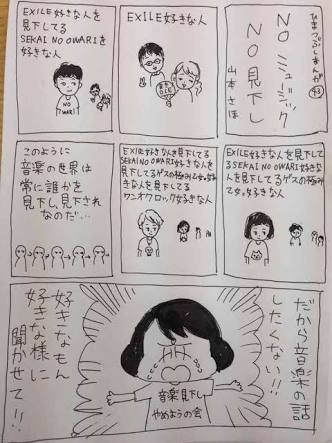 ひまつぶしまんが 43
NOミュージック
NO見下し
山本さほ
EXILE好きな人
EXILE好きな人を
見下してる
SEKAI NO OWARIを
好きな人
NO
WARI
EXILE好きな人を見下して
るSEKAI NO OWARI好きな人
を見下してるゲスの極み
乙女。好きな人
EXILE好きな人を見下してる
SEKAI NO OWARI好きな人を見
下してるゲスの極み乙女。好
きな人を見下してる
ワンオクロック好きな人
このように
音楽の世界は
常に誰かを
見下し、見下され
なのだ…
だから音楽の話
したくない!!
音楽見下し
やめようの会
好きなもん
好きな様に
聞かせて!!